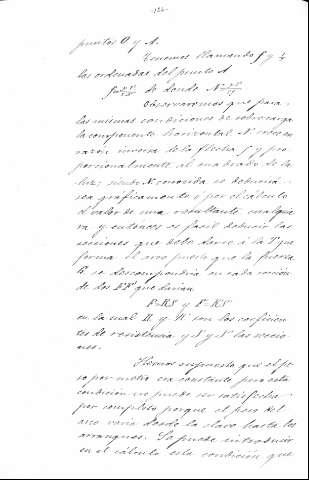 puntos O y A.
Tenemos llamando f y
las ordenadas del punto A
de donde N
Observaremos que para
las mismas condiciones de sobrecarga
la componente horizontal N crece en
razón inversa de la flecha f y pro
porcionalmente al cuadrado de la
luz; siendo N conocida se deducirá
sea gráficamente o por el cálculo
el valor de una resultante cualquie
ra y entonces es facil deducir las
secciones que debe darse á la
forma. El arco puesto que la fuerza
R se descompondria en cada sección
de dos P P' que darian
P=RS y P'=R'S'
en la cual R y R' son los coeficien
tes de resistencia y S y S' las seccio
nes.
Hemos supuesto que el pe
so por metro era constante pero esta
condición no puede ser satisfecha
por completo porque el peso del
arco varia desde la clave hasta los
arranques. Se puede introducir
en el cálculo esta condición que